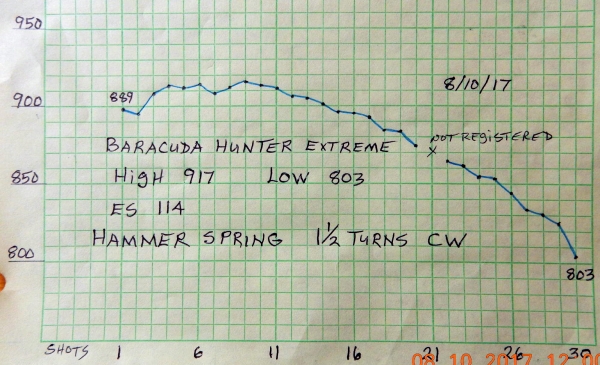 950
8/10/17
889
900
NOT REGISTERED
BARACUDA HUNTER EXTREME
X
HIGH 917 LOW 803
850
ES 114
HAMMER SPRING 1 1/2 TURNS CW
800
803
SHOTS 1 6 11 16 21 26 30
08.10.2017 12:00